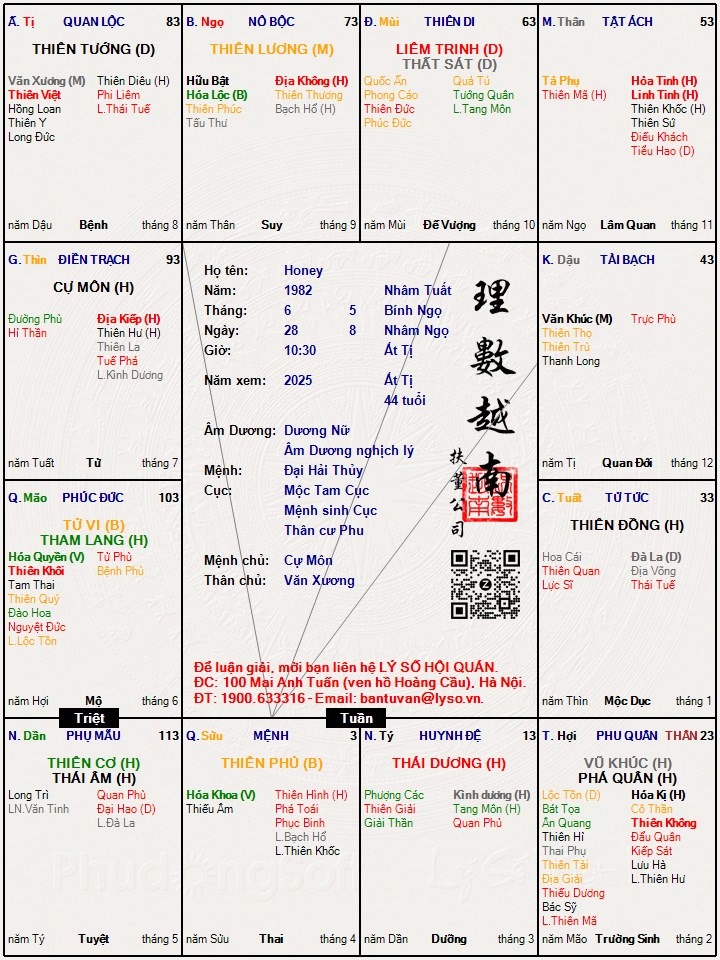 Ấ. Tị QUAN LỘC 83
THIÊN TƯỚNG (D)
Văn Xương (M) Thiên Diêu (H)
Thiên Việt Phi Liêm
Hồng Loan L.Thái Tuế
Thiên Y
Long Đức
năm Dậu Bệnh tháng 8
B. Ngọ NÔ BỘC 73
THIÊN LƯƠNG (M)
Hữu Bật Địa Không (H)
Hóa Lộc (B) Thiên Thương
Thiên Phúc Bạch Hổ (H)
Tấu Thư
năm Thân Suy tháng 9
Đ. Mùi THIÊN DI 63
LIÊM TRINH (D)
THẤT SÁT (D)
Quốc Ấn Quả Tú
Phong Cáo Tướng Quân
Thiên Đức L.Tang Môn
Phúc Đức
năm Mùi Đế Vượng tháng 10
M. Thân TẬT ÁCH 53
Tả Phụ Hỏa Tinh (H)
Thiên Mã (H) Linh Tinh (H)
Thiên Khốc (H)
Thiên Sứ
Điếu Khách
Tiểu Hao (D)
năm Ngọ Lâm Quan tháng 11
G. Thìn ĐIỀN TRẠCH 93
CỰ MÔN (H)
Đường Phù Địa Kiếp (H)
Hỉ Thần Thiên Hư (H)
Thiên La
Tuế Phá
L.Kình Dương
năm Tuất Tử tháng 7
Họ tên: Honey
Năm: 1982 Nhâm Tuất
Tháng: 6 5 Bính Ngọ
Ngày: 28 8 Nhâm Ngọ
Giờ: 10:30 Ất Tị
Năm xem: 2025 Ất Tị
44 tuổi
Âm Dương: Dương Nữ
Âm Dương nghịch lý
Mệnh: Đại Hải Thủy
Cục: Mộc Tam Cục
Mệnh sinh Cục
Thân cư Phu
Mệnh chủ: Cự Môn
Thân chủ: Văn Xương
理數越南
扶董公司
Để luận giải, mời bạn liên hệ LÝ SỐ HỘI QUÁN.
ĐC: 100 Mai Anh Tuấn (ven hồ Hoàng Cầu), Hà Nội.
ĐT: 1900.633316 - Email: bantuvan@lyso.vn.
K. Dậu TÀI BẠCH 43
Văn Khúc (M) Trực Phù
Thiên Thọ
Thiên Trù
Thanh Long
năm Tị Quan Đới tháng 12
Q. Mão PHÚC ĐỨC 103
TỬ VI (B)
THAM LANG (H)
Hóa Quyền (V) Tử Phù
Thiên Khôi Bệnh Phù
Tam Thai
Thiên Quý
Đào Hoa
Nguyệt Đức
L.Lộc Tồn
năm Hợi Mộ tháng 6
C. Tuất TỬ TỨC 33
THIÊN ĐỒNG (H)
Hoa Cái Đà La (D)
Thiên Quan Địa Võng
Lực Sĩ Thái Tuế
năm Thìn Mộc Dục tháng 1
Triệt
Tuần
N. Dần PHỤ MẪU 113
THIÊN CƠ (H)
THÁI ÂM (H)
Long Trì Quan Phù
LN.Văn Tinh Đại Hao (D)
L.Đà La
năm Tý Tuyệt tháng 5
Q. Sửu MỆNH 3
THIÊN PHỦ (B)
Hóa Khoa (V) Thiên Hình (H)
Thiếu Âm Phá Toái
Phục Binh
L.Bạch Hổ
L.Thiên Khốc
năm Sửu Thai tháng 4
N. Tý HUYNH ĐỆ 13
THÁI DƯƠNG (H)
Phượng Các Kình dương (H)
Thiên Giải Tang Môn (H)
Giải Thần Quan Phủ
năm Dần Dưỡng tháng 3
T. Hợi PHU QUÂN THÂN 23
VŨ KHÚC (H)
PHÁ QUÂN (H)
Lộc Tồn (D) Hóa Kị (H)
Bát Tọa Cô Thần
Ân Quang Thiên Không
Thiên Hỉ Đẩu Quân
Thai Phụ Kiếp Sát
Thiên Tài Lưu Hà
Địa Giải L.Thiên Hư
Thiếu Dương
Bác Sỹ
L.Thiên Mã
năm Mão Trường Sinh tháng 2